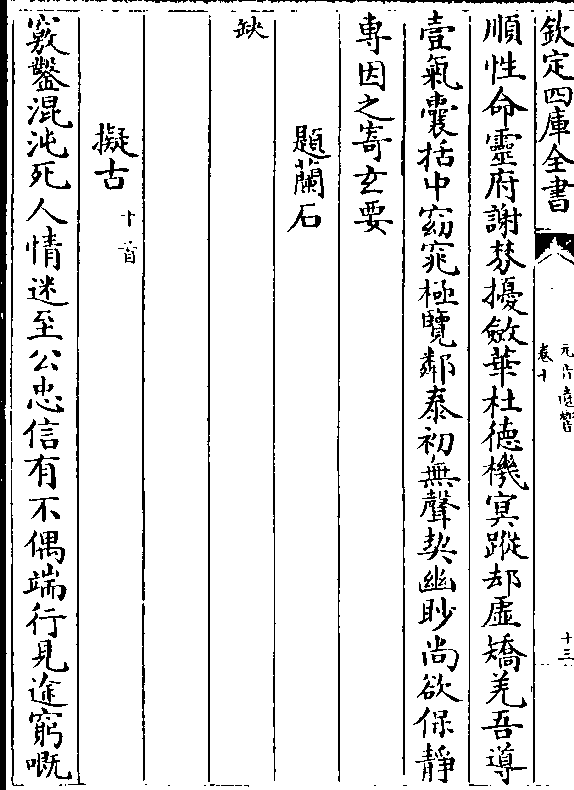 欽定四庫全書
卷十
十三
順性命靈府謝棼擾斂華杜德機冥蹤却虛矯羌吾導
壹氣囊括中窈窕極覽鄰泰初無聲契幽眇尚欲保靜
專因之寄玄要
題蘭石
缺
擬古十首
竅鑿混沌死人情迷至公忠信有不偶端行見途窮嘅